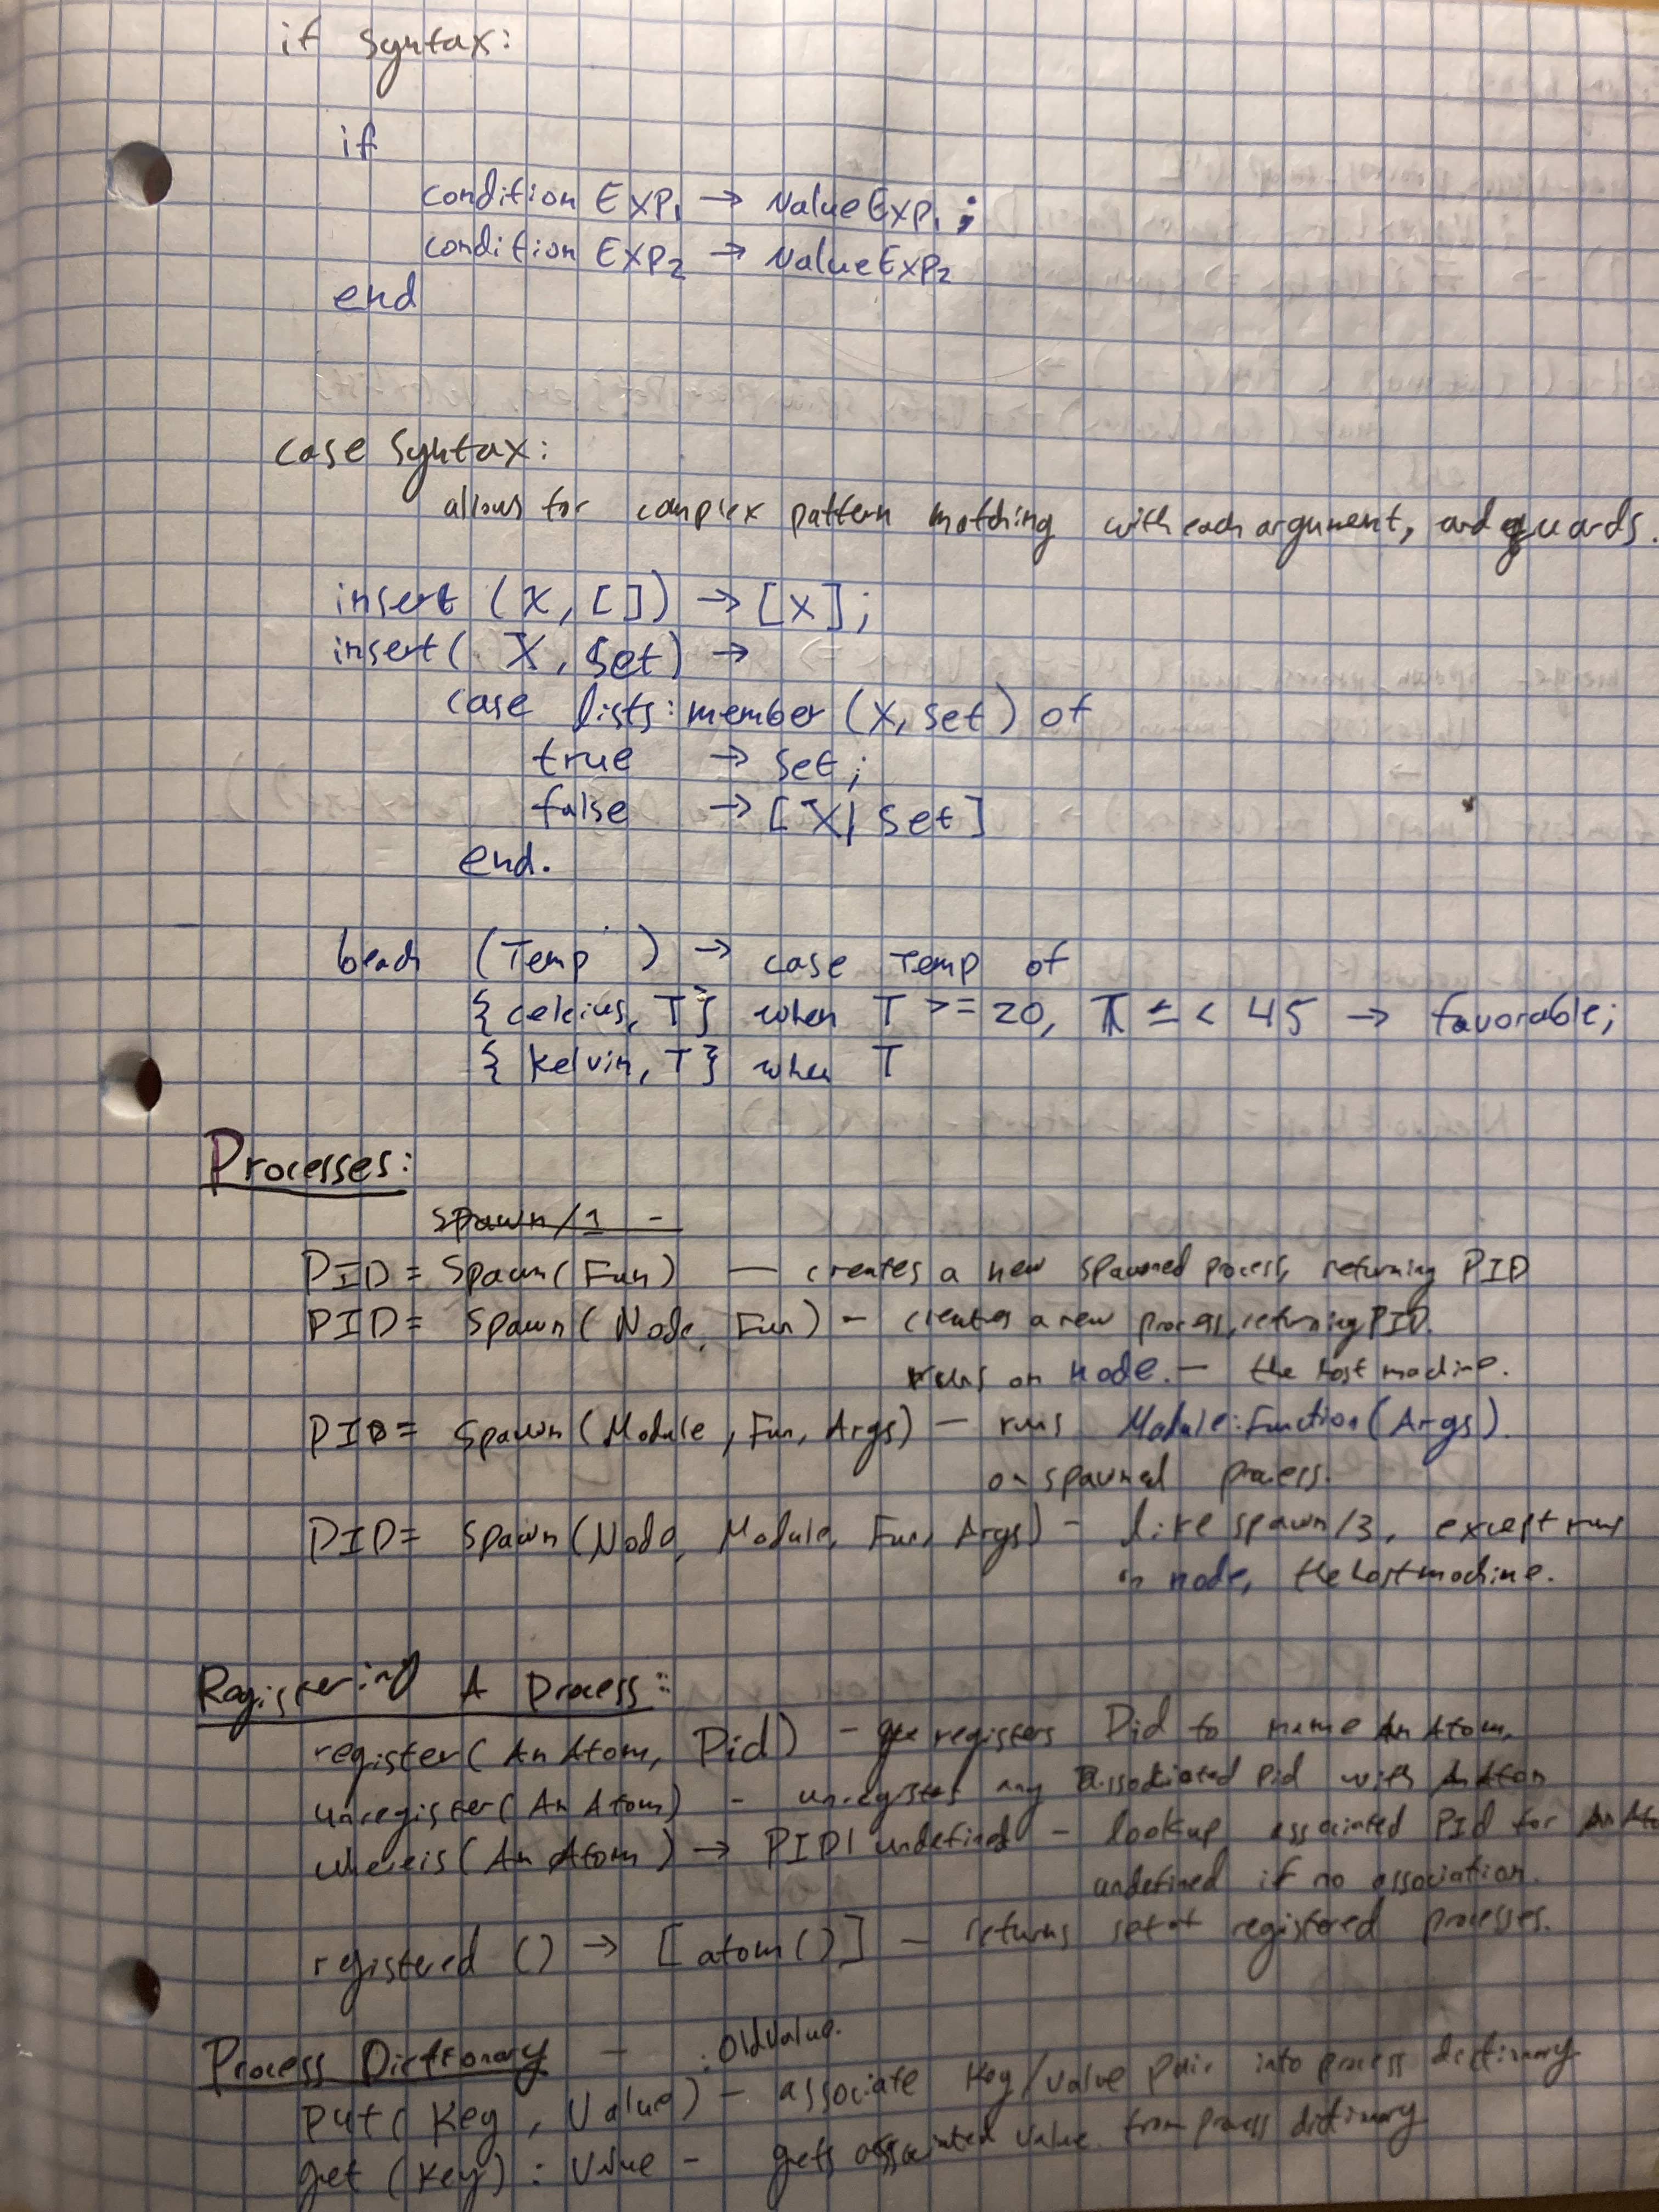 if syntax:
if
condition Exp1 → ValueExp1 ;
condition Exp2 → ValueExp2
end
case syntax:
allows for complex pattern matching with each argument, and guards.
insert (X, []) → [X];
insert( X, Set) →
case lists:member (X, Set) of
true → Set;
false → [X| Set]
end.
beach (Temp ) → case Temp of
{celcius, T} when T >= 20, T =< 45 → favorable;
{kelvin, T} when T
Processes:
spawn/1 -
PID = Spawn(Fun) — creates a new spawned process, returning PID
PID= Spawn( Node, Fun) - creates a new process, returning PID.
runs on node. — the host machine.
PID= Spawn(Module, Fun, Args) — runs Module:Function(Args).
on spawned process.
PID= Spawn(Node, Module, Fun, Args) - like spawn/3, except runs
on node, the host machine.
Registering A Process:
register( AnAtom, Pid) - registers Pid to name AnAtom.
unregister( AnAtom) - unregister any associated pid with AnAtom
whereis( AnAtom ) → PID| undefined - lookup associated PId for AnAto
undefined if no association.
registered () → [atom()] — returns set of registered processes.
Process Dictionary —
: OldValue.
put( Key, Value) - associate Key/value pair into process dictionary
get (Key) : Value - gets associated value from process dictionary